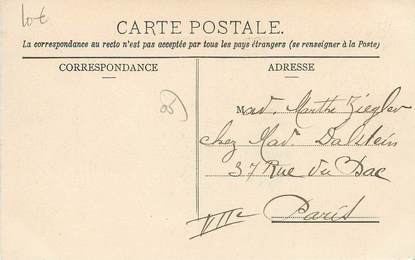 CARTE POSTALE.
La correspondance au recto n'est pas acceptée par tous les pays étrangers (se renseigner à la Poste)
CORRESPONDANCE
ADRESSE
Mad. Marthe Ziegler
chez Mad. Dalstein
37 Rue du Bac
VIIe Paris